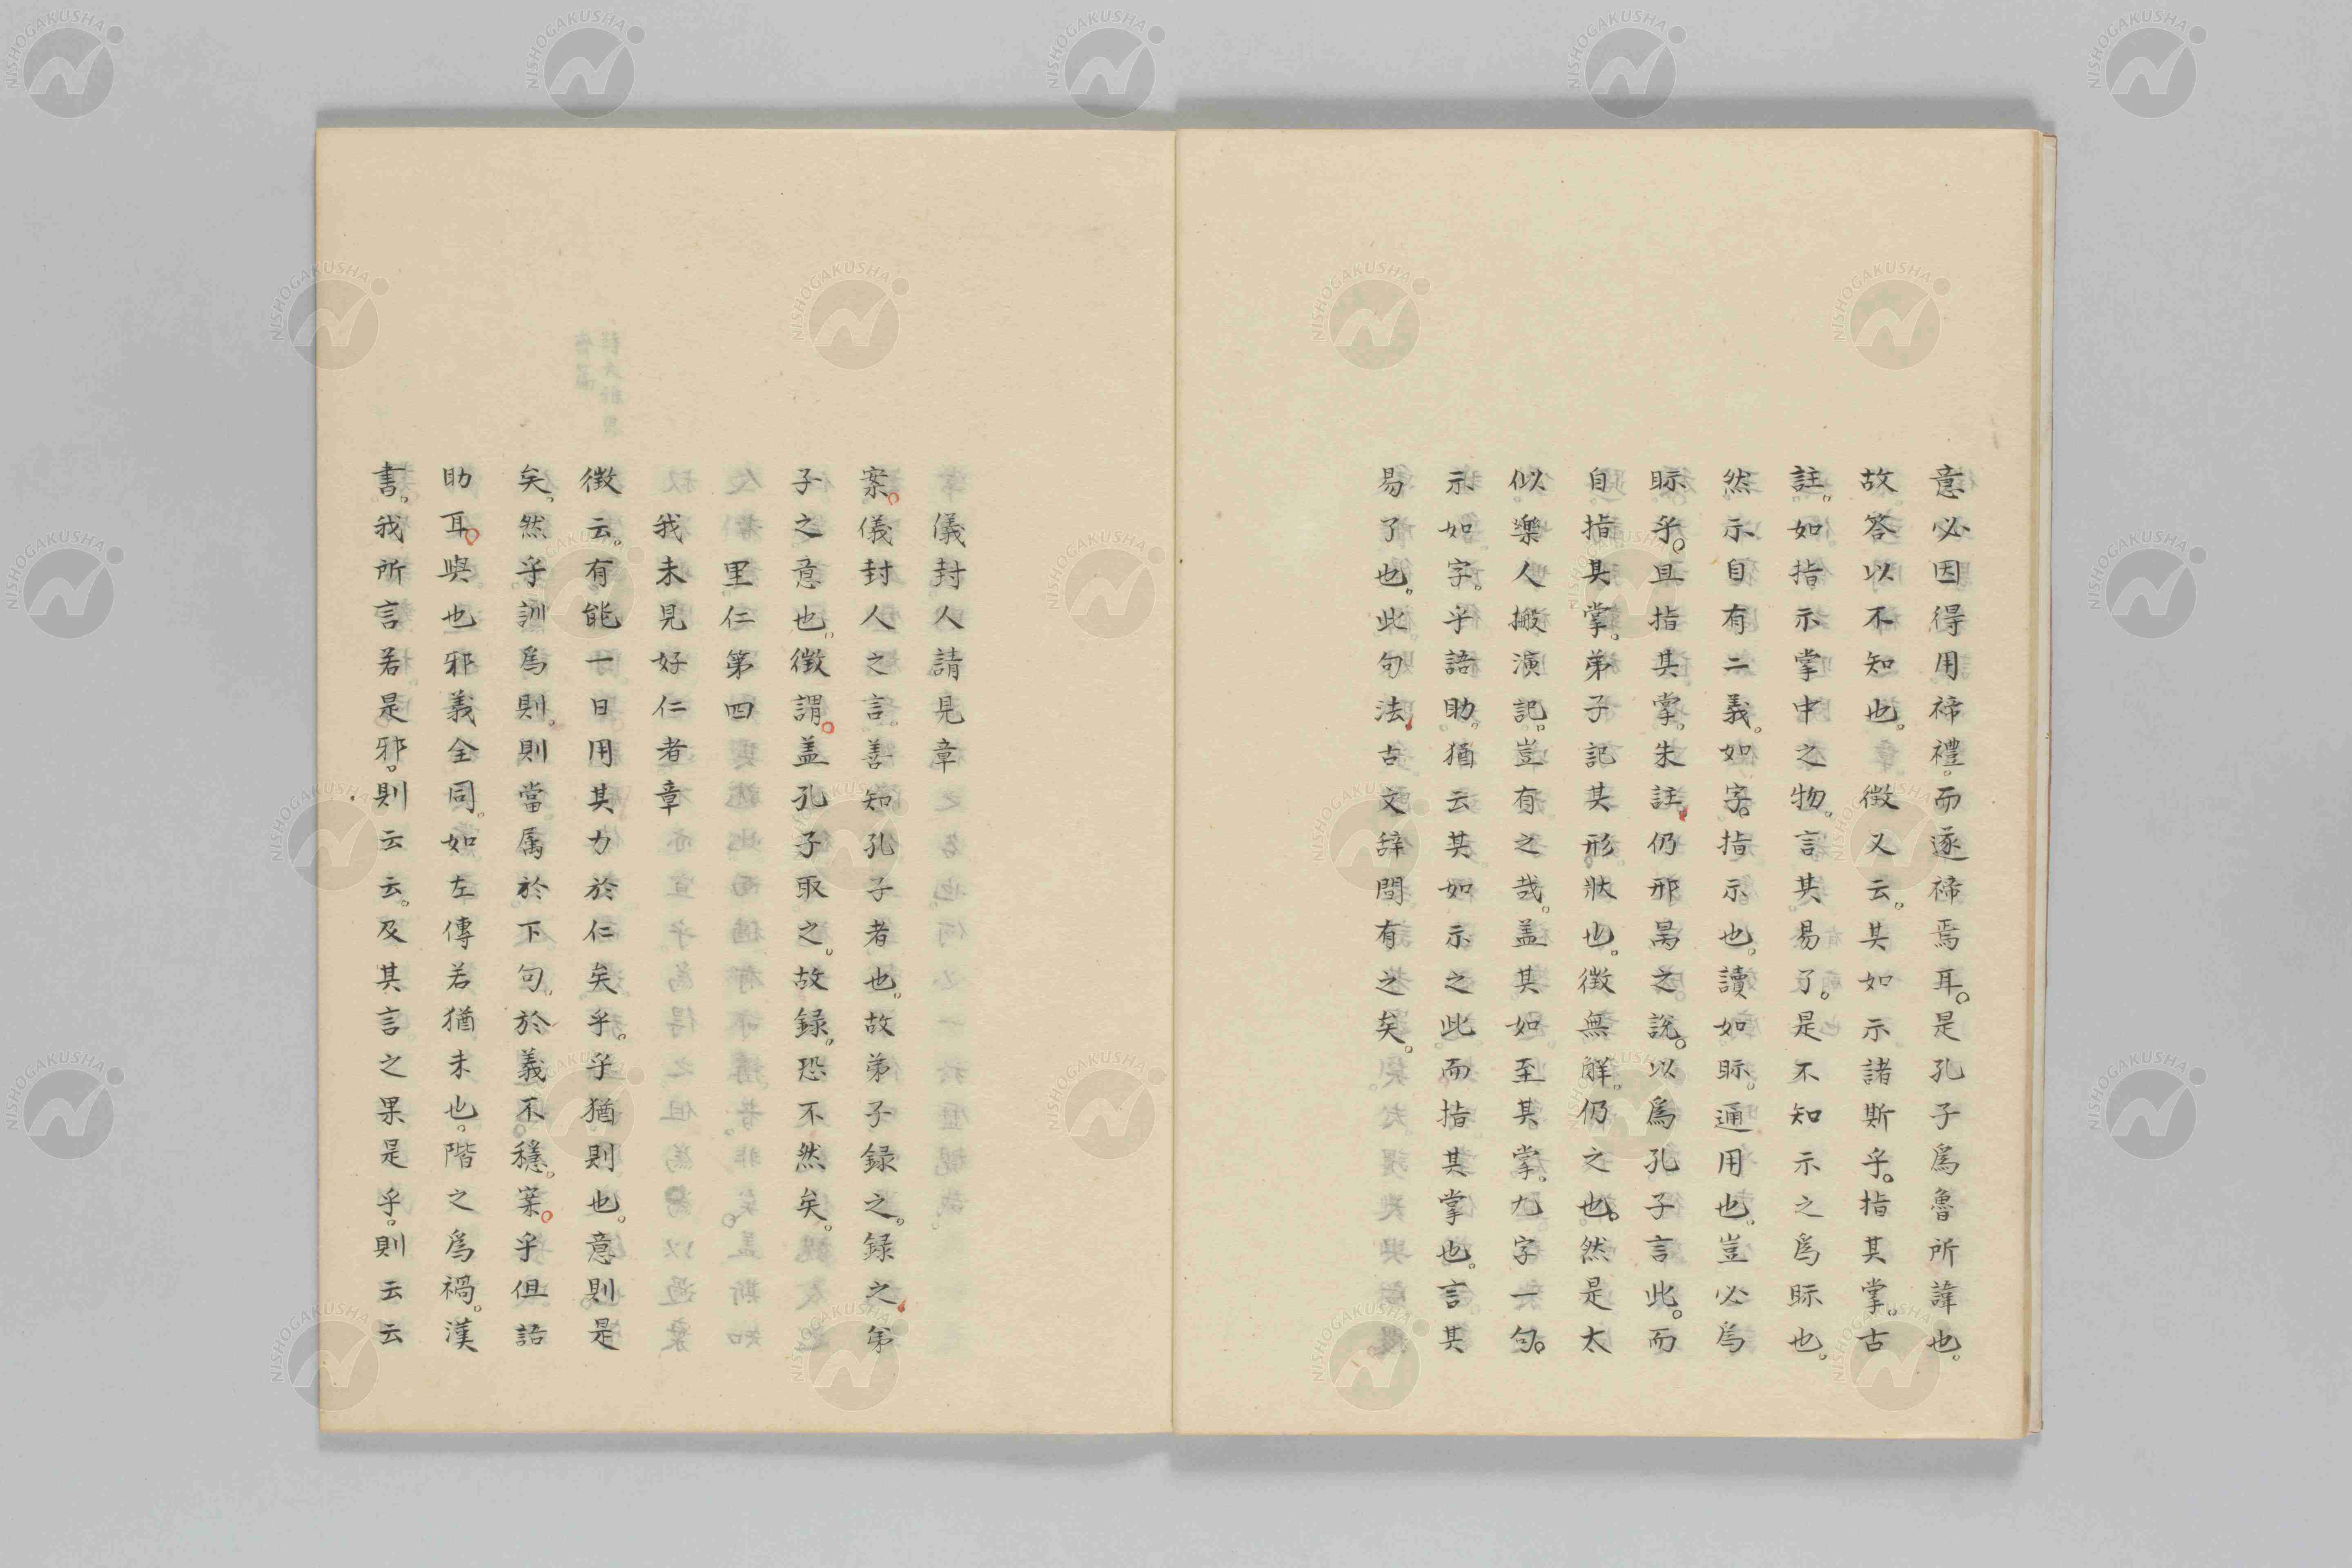 意必因得用禘禮。而遂禘焉耳。是孔子爲魯所諱也。
故答以不知也。徴又云。其如示諸斯乎。指其掌。古
註。如指示掌中之物。言其易了。是不知示之爲眎也。
然示自有二義。如字。指示也。讀如眎。通用也。豈必爲
眎乎。且指其掌。朱註。仍邢昺之說。以爲孔子言此。而
自指其掌。弟子記其形狀也。徴無解。仍之也。然是太
似樂人搬演記。豈有之哉。盖其如至其掌。九字一句。
示如字。乎語助。猶云其如示之此。而指其掌也。言其
易了也。此句法。古文辞間有之矣。
儀封人請見章
案。儀封人之言。善知孔子者也。故弟子録之。録之。弟
子之意也。徴謂。盖孔子取之。故録。恐不然矣。
里仁第四
我未見好仁者章
徴云。有能一日用其力於仁矣乎。乎猶則也。意則是
矣。然乎訓爲則。則當属於下句。於義不穩。案。乎但語
助耳。與也邪義全同。如左傳若猶未也。階之爲禍。漢
書。我所言若是邪。則云云。及其言之果是乎。則云云
NISHOGAKUSHA